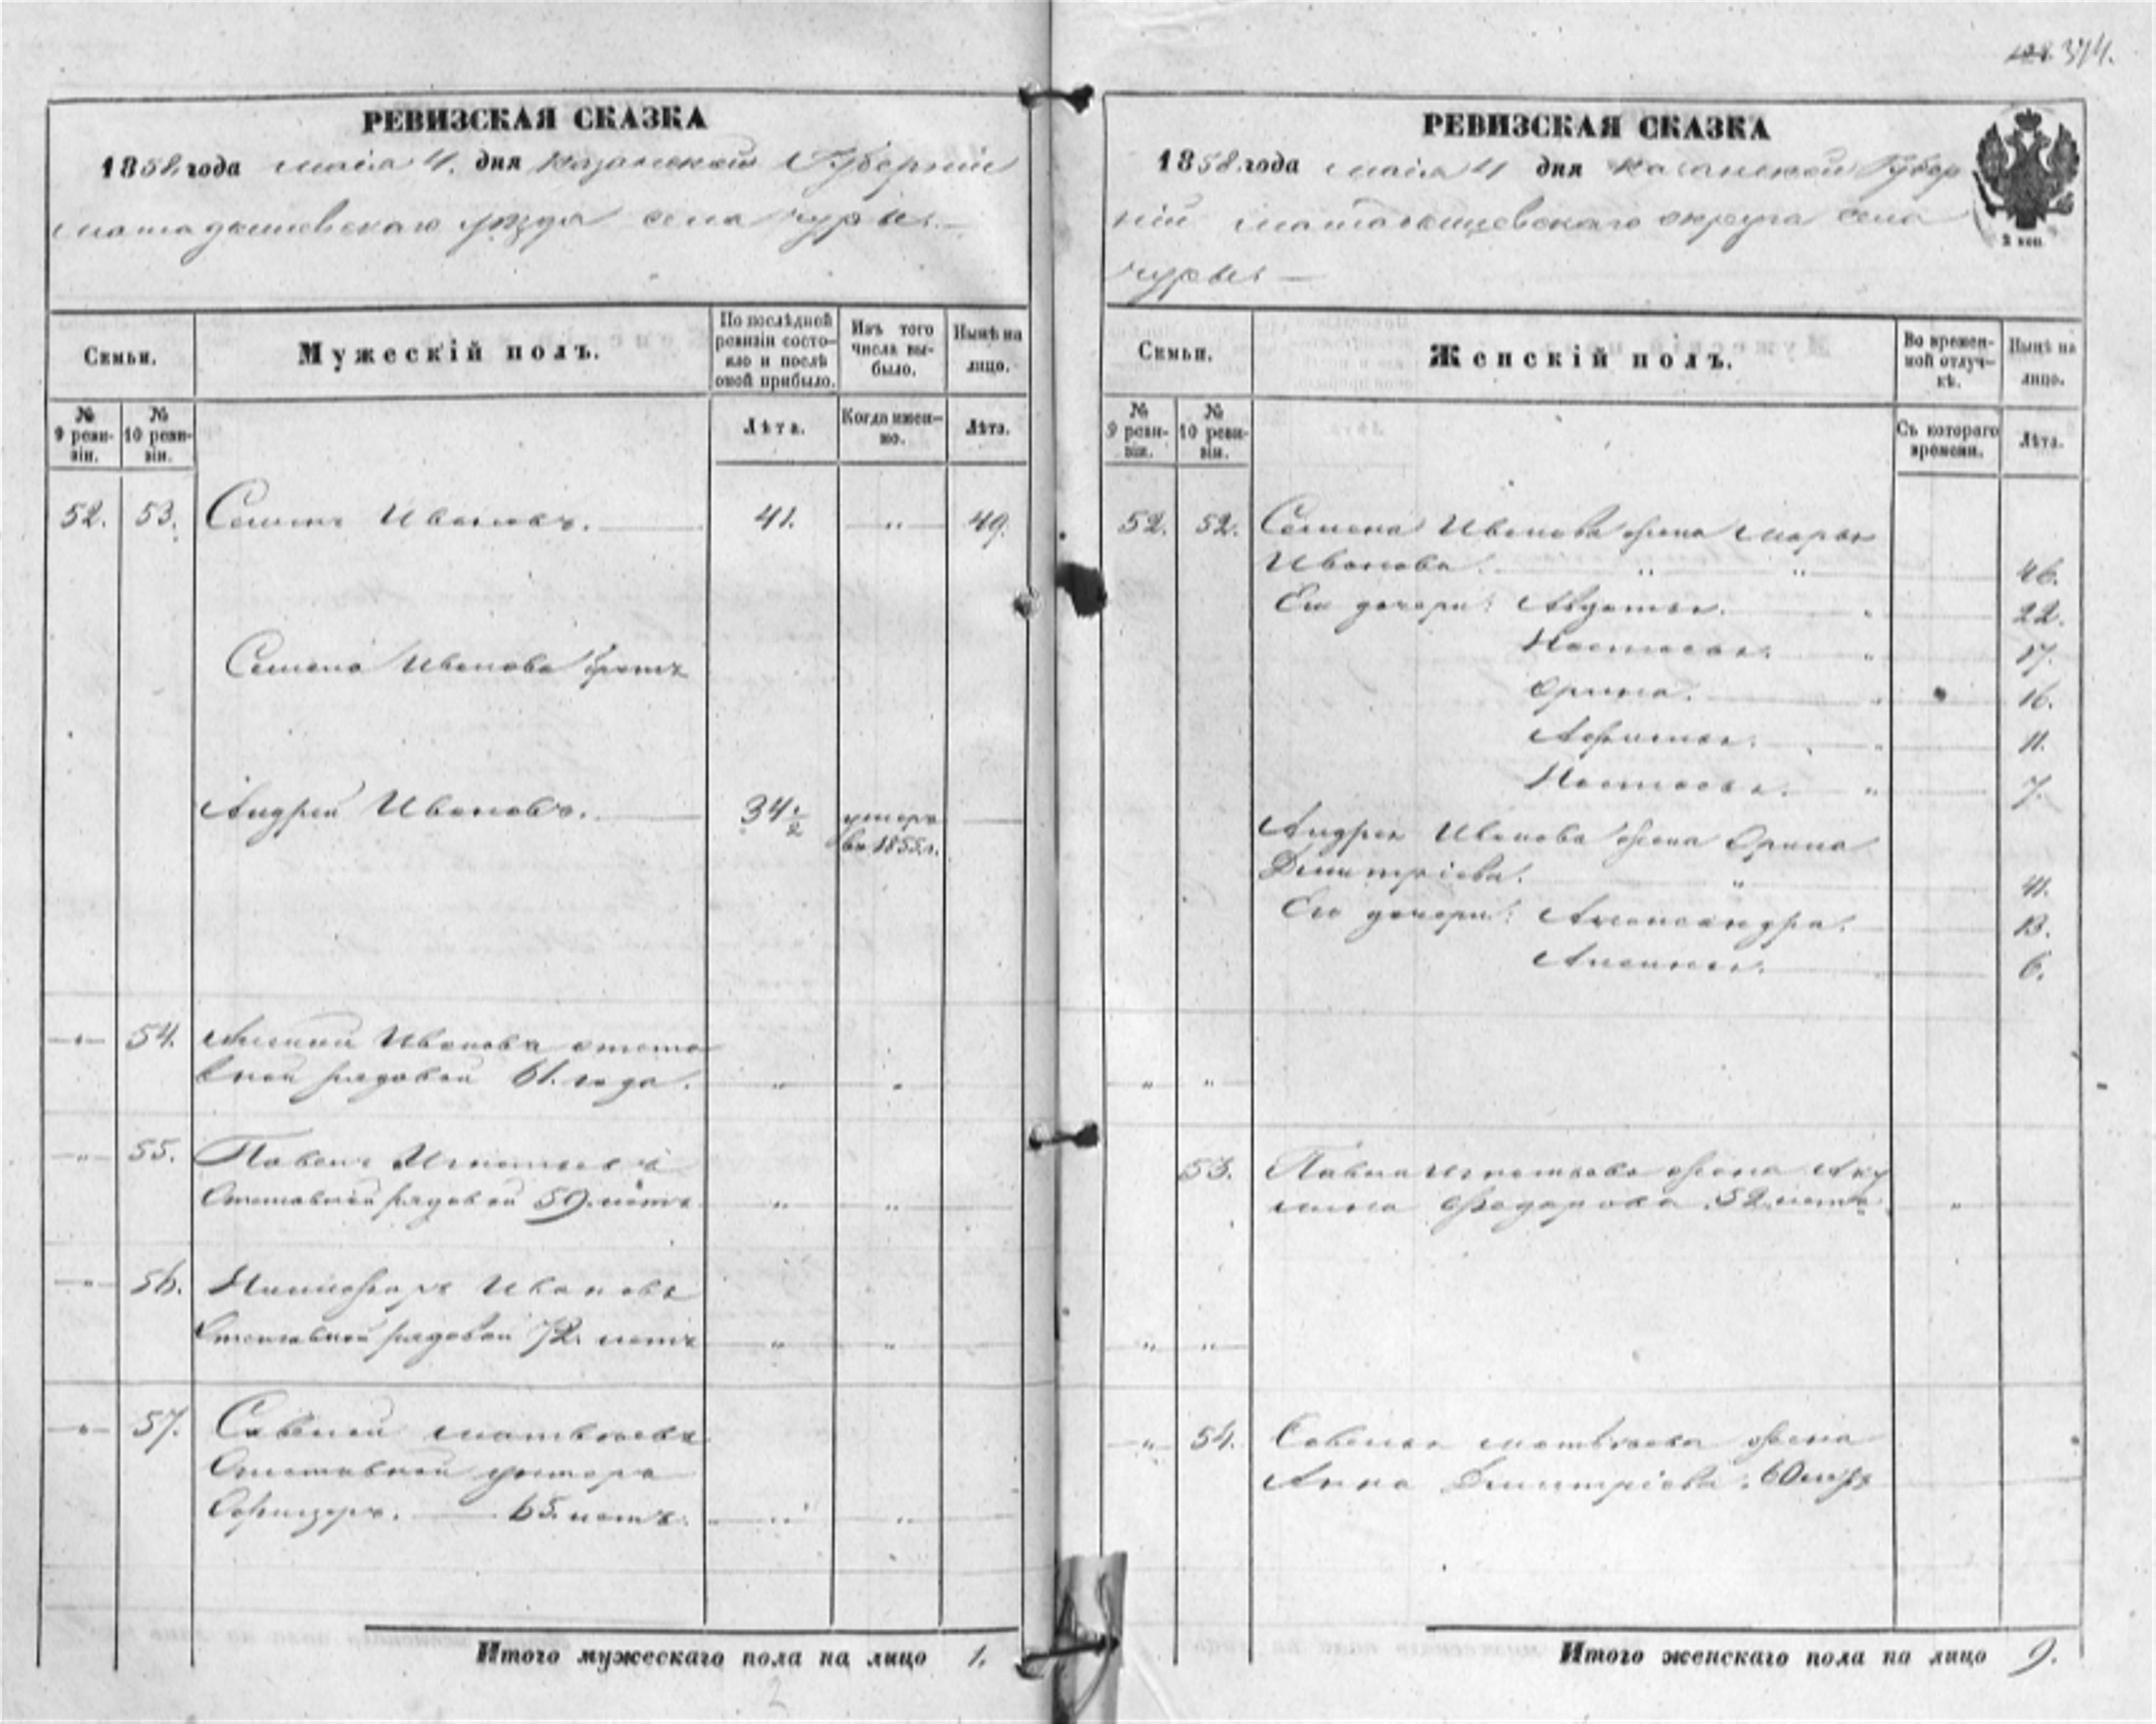 374.
РЕВИЗСКАЯ СКАЗКА
1858 года маія 4. дня Казанской Губерніи
мамадышевскаго уѣзда села чуры.
Семьи.
Мужескій полъ.
По послѣдней ревизіи состояло и послѣ оной прибыло.
Изъ того числа выбыло.
Нынѣ на лицо.
№ 9 ревизіи.
№ 10 ревизіи.
Лѣта.
Когда именно.
Лѣта.
52. 53. Семенъ Ивановъ. 41. „ 49.
Семена Иванова братъ
Андрей Ивановъ. 34 1/2 умеръ
въ 1855 г.
54. Ивановъ отста
вной рядовой 61. года. „ „
„ 55. Павелъ Игнатьевъ
Отставной рядовой 59. летъ „ „
„ 56. Никифоръ Ивановъ
Отставной рядовой 72. летъ „ „
„ 57. Савелій матвѣевъ
Отставной унтеръ
Офицеръ. 65. летъ. „ „
Итого мужескаго пола на лицо 1.
2
РЕВИЗСКАЯ СКАЗКА
1858. года маія 4 дня Казанской Губер
ніи мамадышевскаго округа села
чуры
2 коп.
Семьи.
Женскій полъ.
Во временной отлучкѣ.
Нынѣ на лицо.
№ 9 ревизіи.
№ 10 ревизіи.
Съ котораго времени.
Лѣта.
52. 52. Семена Иванова жена Марья
Иванова. „ „ 46.
Ею дочери: Авдотья. „ 22.
Настасья. „ 17.
Орина. „ 16.
Афимья. „ 11.
Настасья. „ 7.
Андрея Иванова жена Орина
Дмитріева. „ 41.
Ею дочери: Александра. 13.
Аксинья. 6.
„ „
53. Павла Игнатьева жена Аку
лина Федорова. 52. летъ. „
„ „
„ 54. Савелья матвѣева жена
Анна Дмитріева. 60 летъ
Итого женскаго пола на лицо 9.